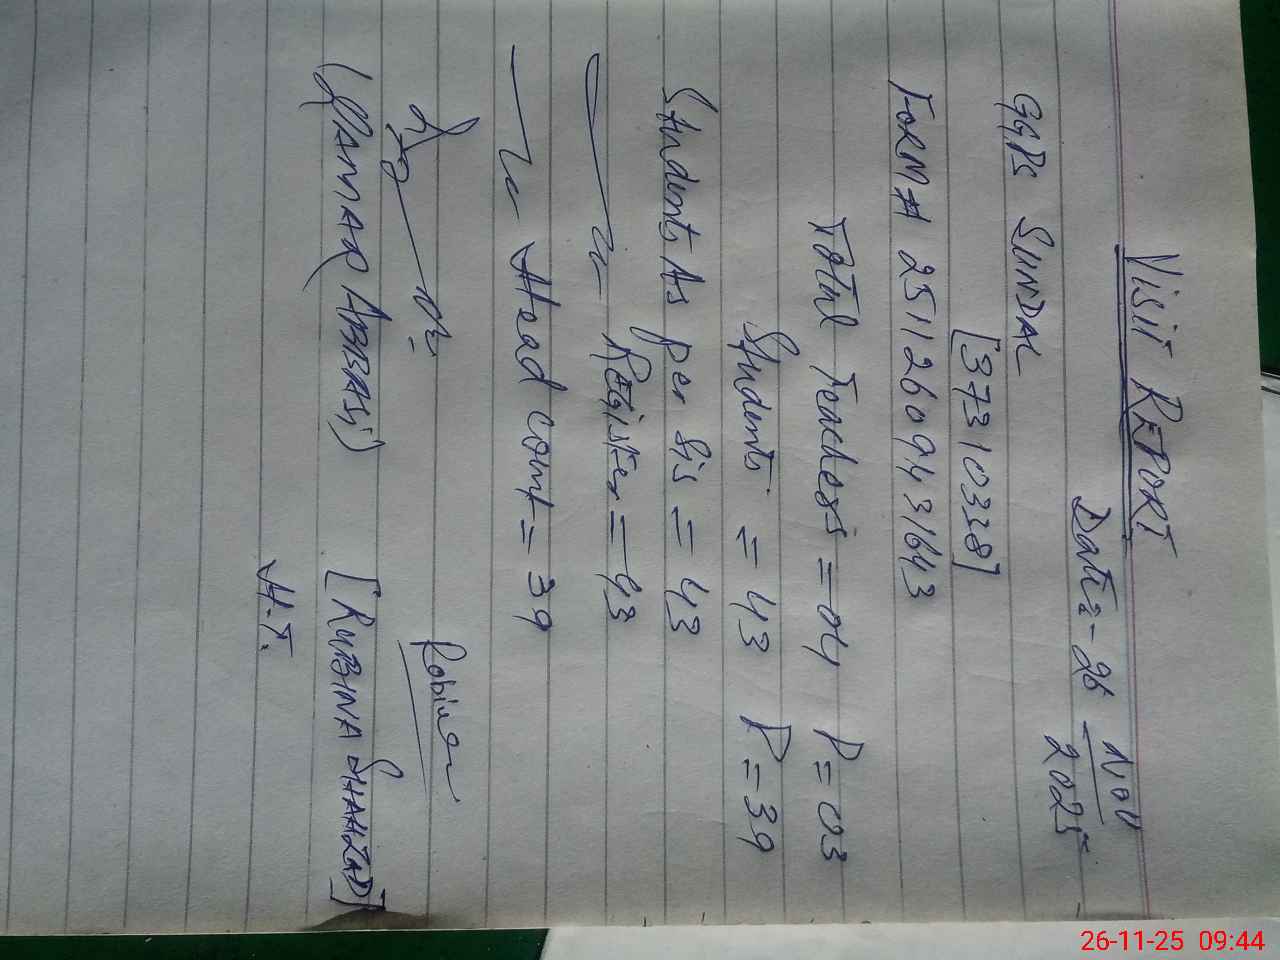 VISIT REPORT
Date:- 26 Nov 2025
GGPS SUNDAL
[37310338]
FORM # 25112609431643
Total Teachers = 04 P = 03
Students = 43 P = 39
Students As per Sis = 43
Register = 43
Head count = 39
Robina
ABBASI) [RUBINA SHAHZAD]
H.T.
26-11-25 09:44